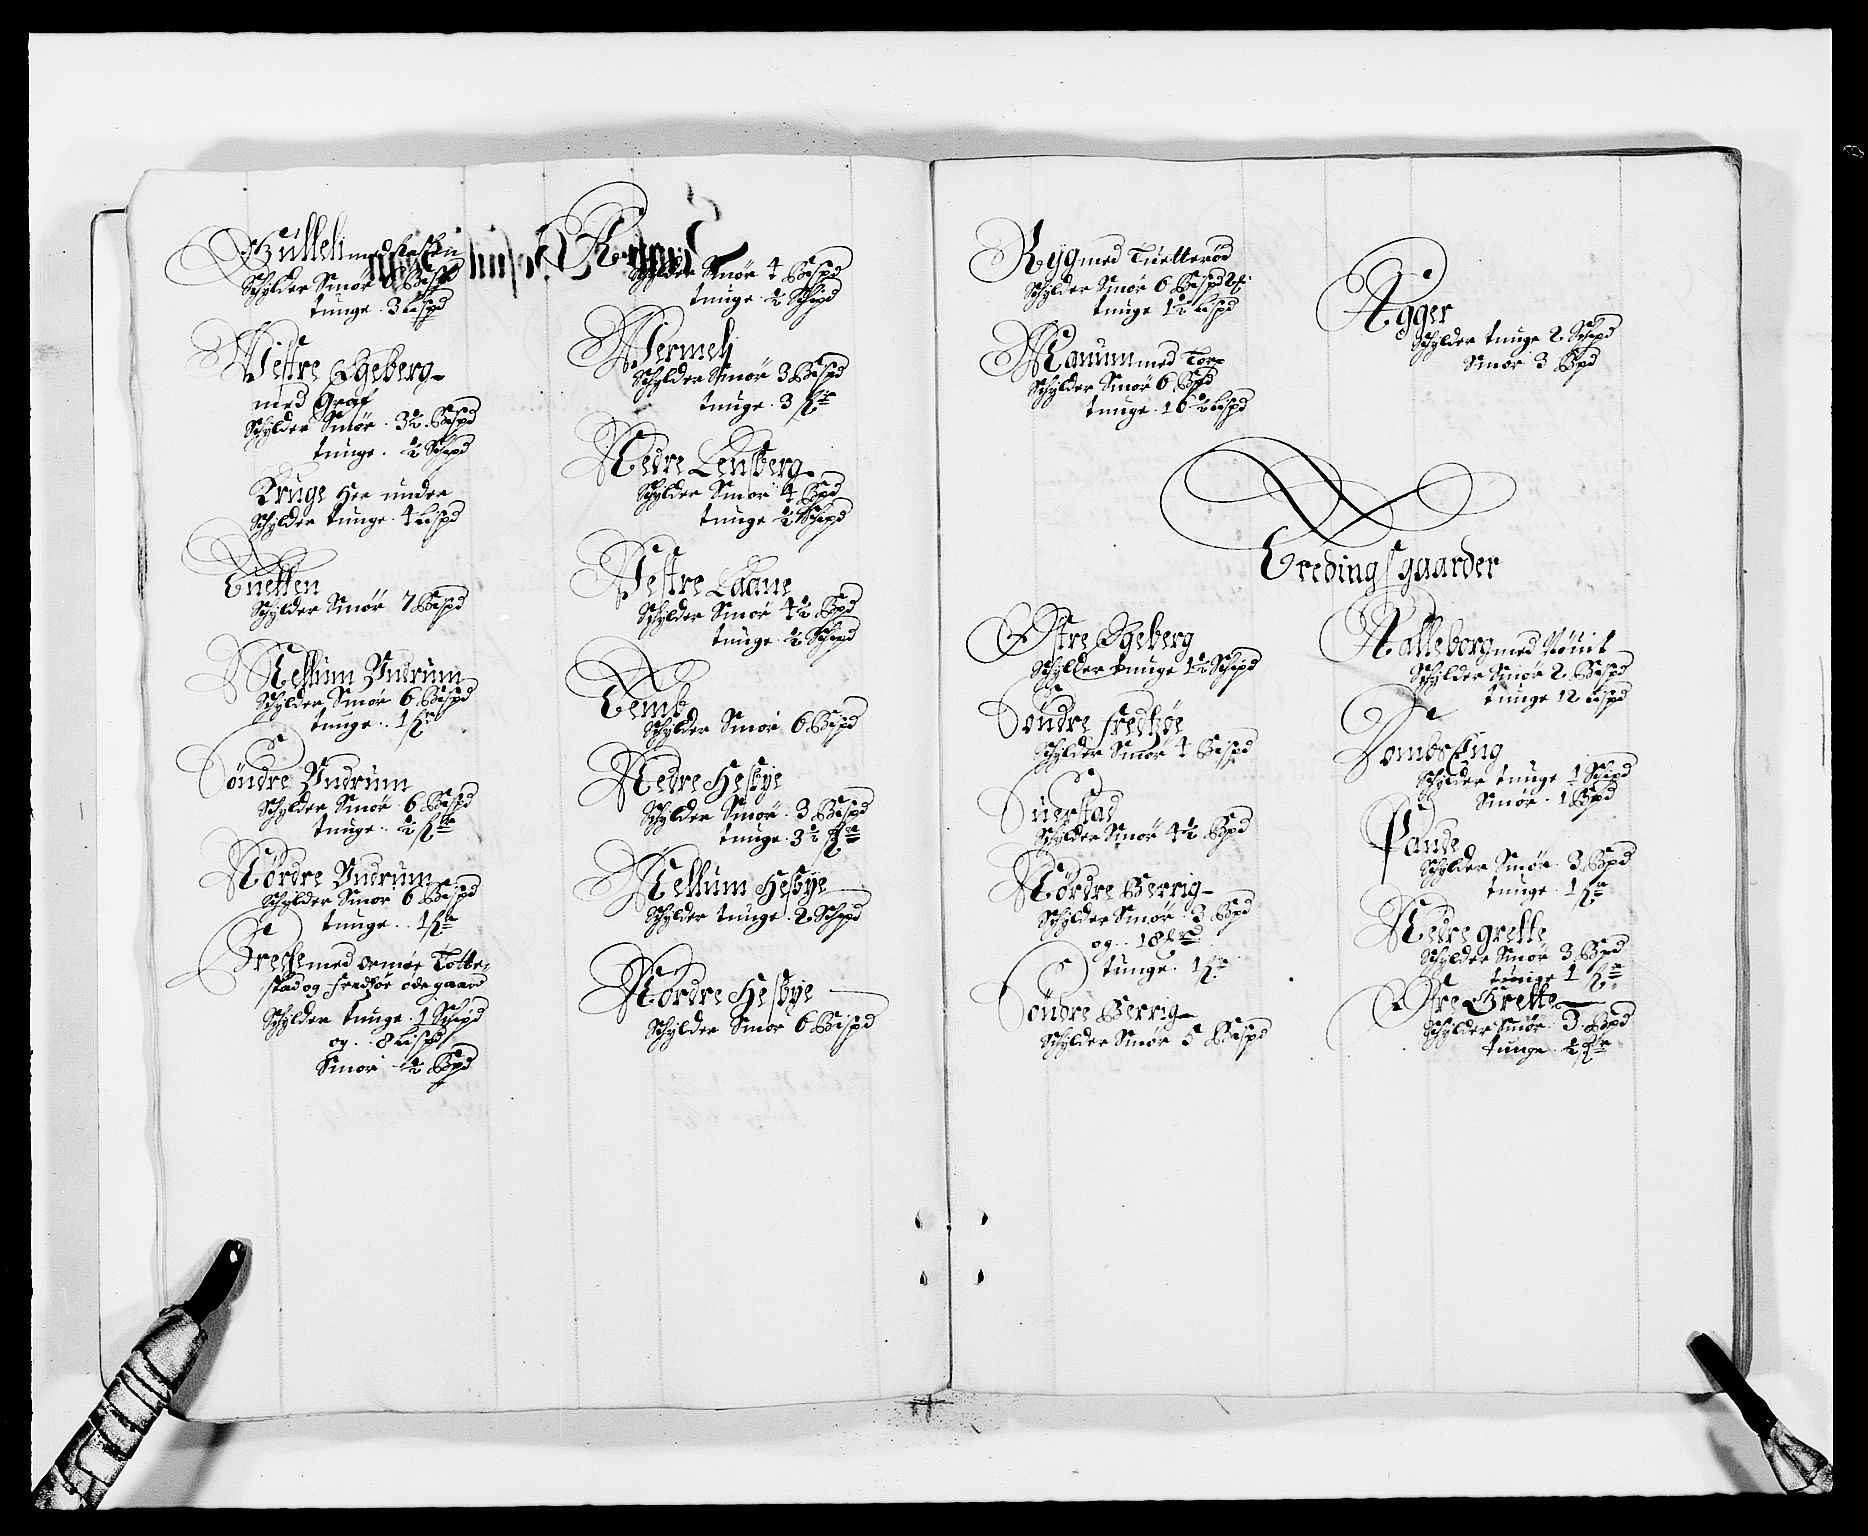 Gulleli med
Schylder Smør 6 Bispd
tunge . 3 Lispd
Vestre Egeberg
med Gräf
Schylder Smør . 3½ . Bispd
tunge . ½ Schpd
Kruge her under
Schylder tunge . 4 Lispd
Tuetten
Schylder Smør 7 Bispd
Mellum Undrum
Schylder Smør 6 Bispd
tunge . . 1
Söndre Undrum
Schylder Smør . 6 Bispd
tunge . . ½
Nördre Undrum
Schylder Smør 6 Bispd
tunge . . 1
med ormøe Totte-
stad og fredhøe ødegaard
Schylder tunge . 1 Schpd
og . . 8 Lispd
Smør ½ Bpd
Schylder Smør 4 Bispd
tunge ½ Schpd
Vermeli
Schylder Smør 3 Bispd
tunge . 3
Nedre Lensberg
Schylder Smør 4 Bpd
tunge ½ Schpd
Vestre Laane
Schylder Smør 4½ Bpd
tunge ½ Schpd
Lemb
Schylder Smør 6 Bispd
Nedre Hesbye
Schylder Smør . 3 Bispd
tunge . 3½
Mellum Hesbye
Schylder tunge . 2 Schpd
Nordre Hesbye
Schylder Smør 6 Bispd
Ryg med Tuetterød
Schylder Smør 6 Bispd
tunge 1½ Lispd
Ramum med
Schylder Smør 6 Bpd
tunge . 16½ Lispd
Agger
Schylder tunge 2 Schpd
Smør 3 Bpd
Tredingsgaarder
Østre Egeberg
Schylder tunge 1½ Schpd
Söndre fredhøe
Schylder Smør 4 Bispd
Suerstad
Schylder Smør 4½ Bpd
Nördre Berrig
Schylder Smør . 3 Bpd
og . . 18
tunge . 1
Söndre Berrig
Schylder Smør 5 Bispd
Aalleborg med
Schylder Smør 2 Bispd
tunge 12 Lispd
Schylder tunge 1 Schpd
Smør . 1 Bpd
Paude
Schylder Smør . 3 Bpd
tunge . 1
Nedre grette
Schylder Smør 3 Bpd
tunge 1
Øfre Grette
Schylder Smør . 3 Bpd
tunge . ½